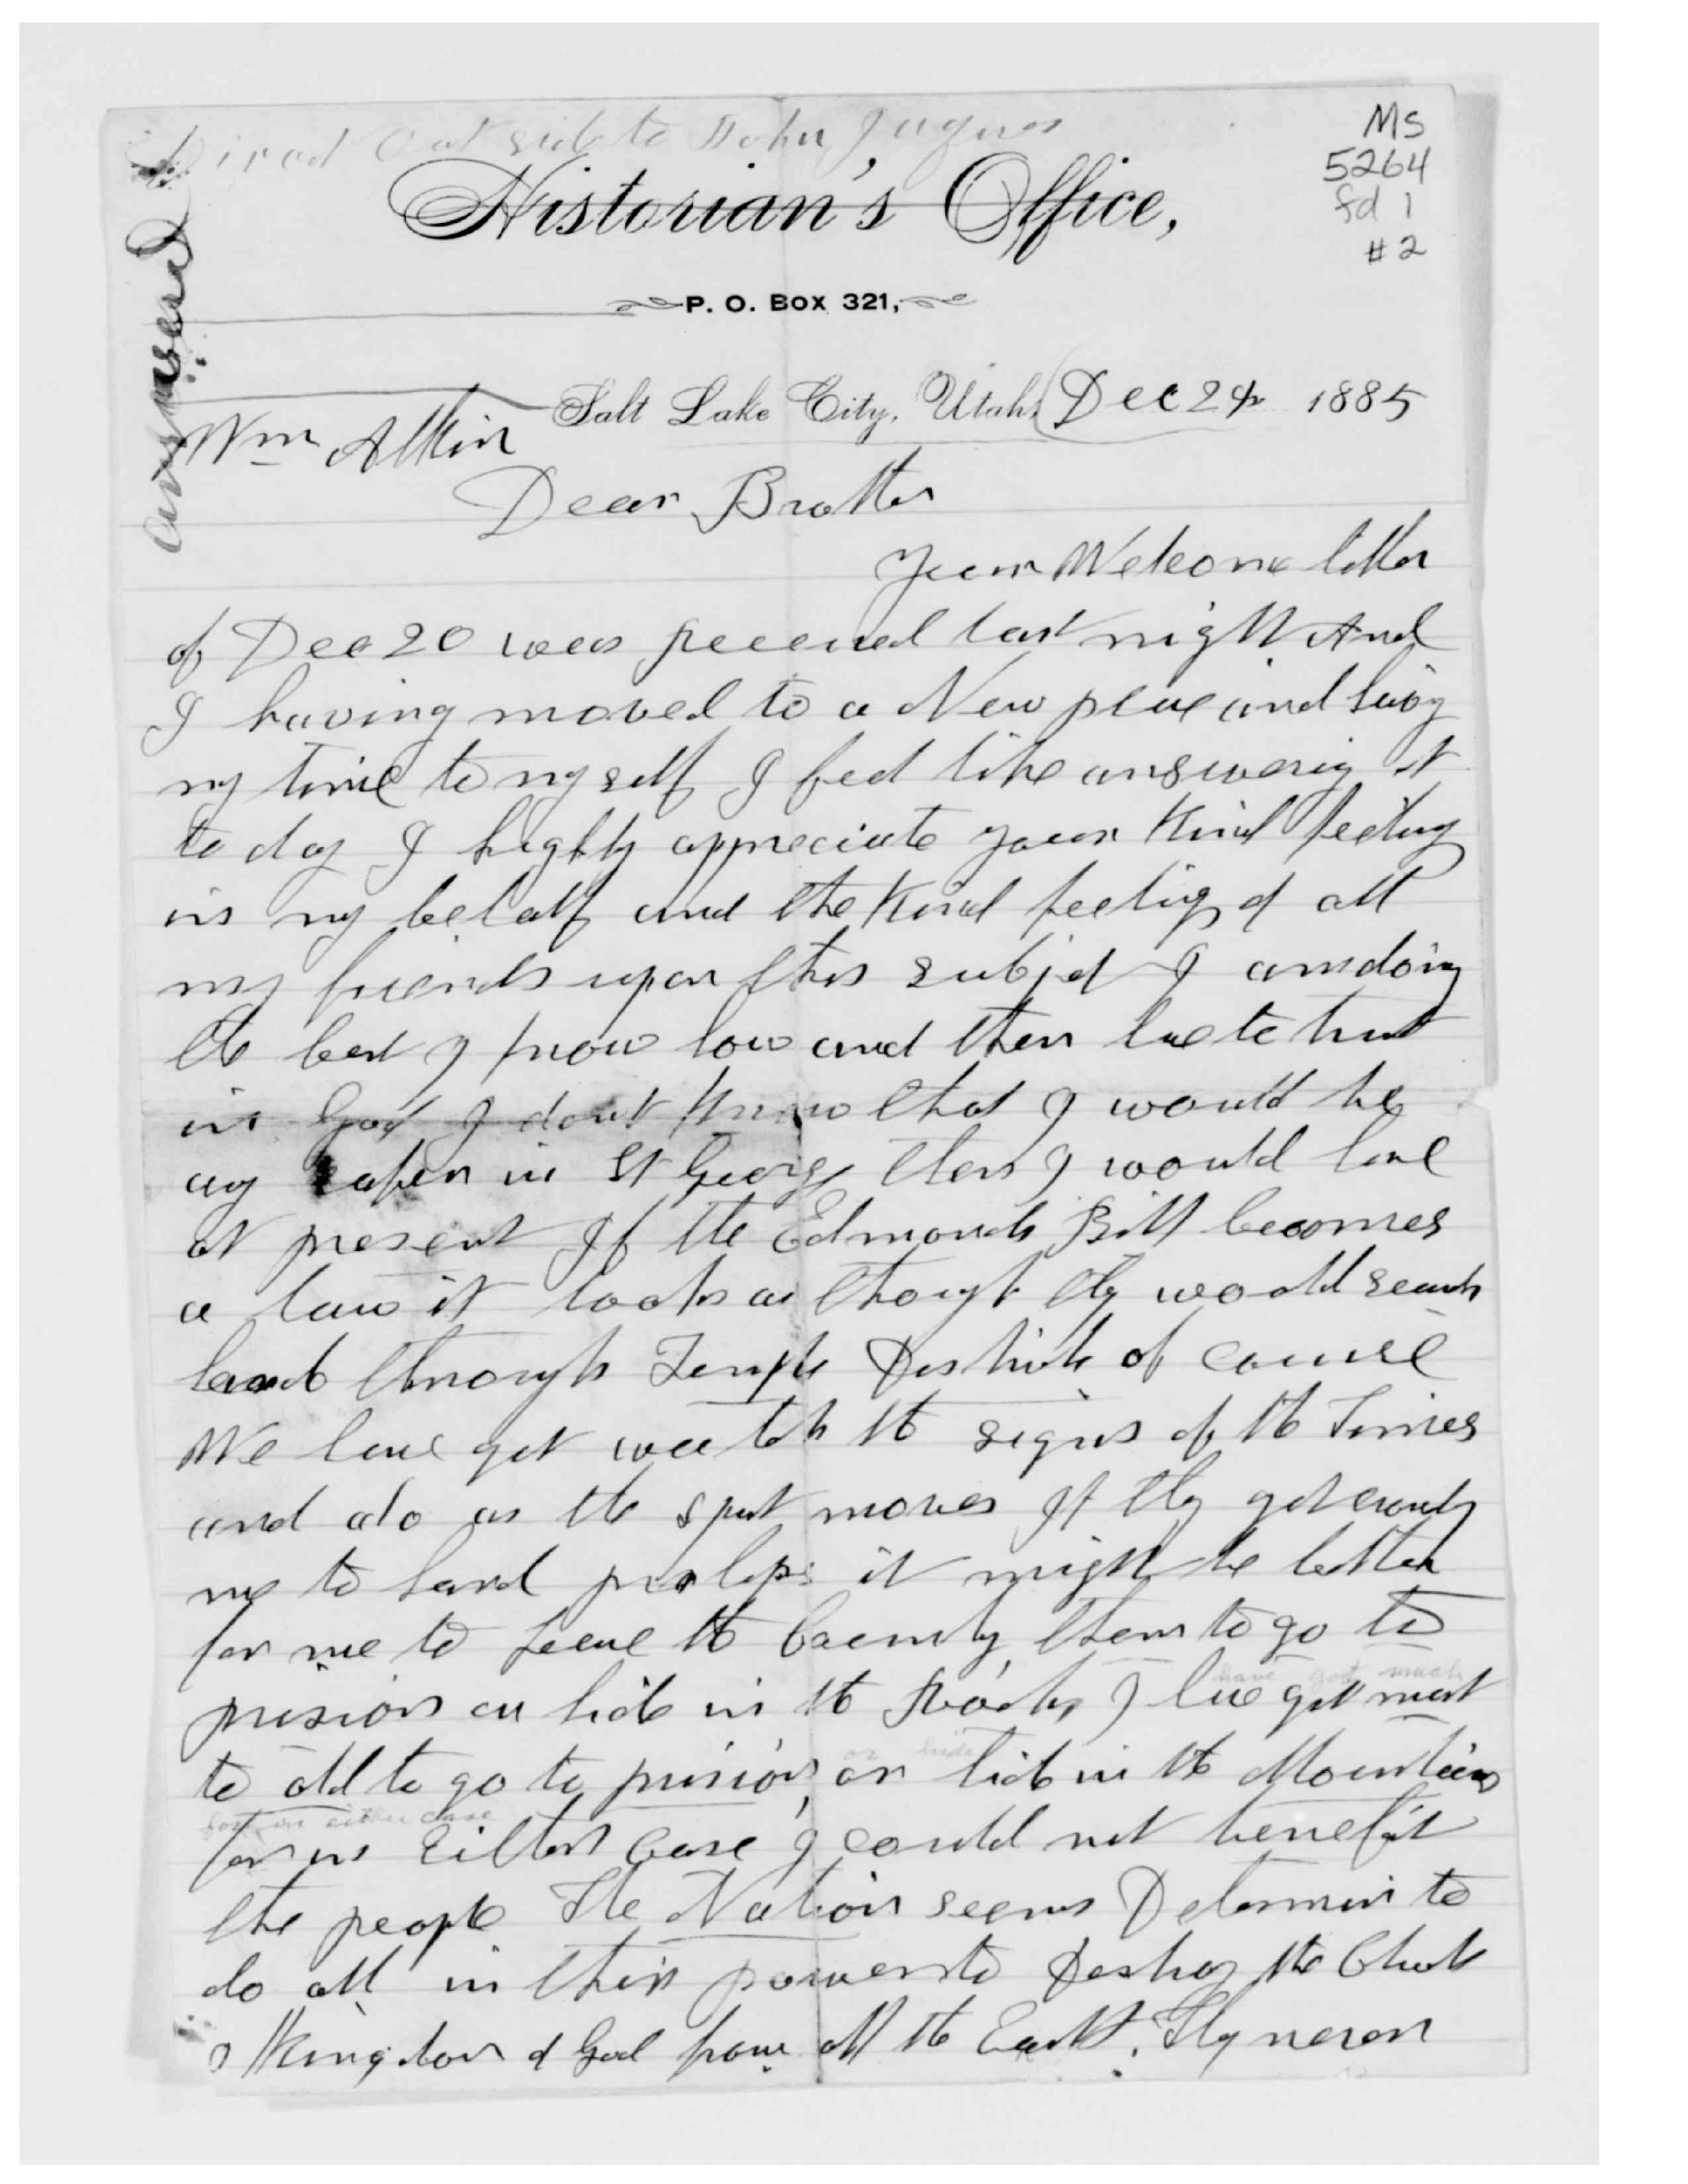 out side to John Jaques
Ms
5264
fd 1
#2
Historian's Office,
P. O. Box 321,
Answered
Salt Lake City, Utah, Dec 24 1885
Wm Atkin
Dear Brother
Your Welcome letter
of Dec 20 was received last night And
I having moved to a New place and having
my time to myself I feel like answering it
to day I highly appreciate your Kind feelings
in my behalf and the Kind feelings of all
my friends upon this subject I am doing
the best I know how and then have to trust
in God I dont know that I would be
any safer in St George then I would here
at present If the Edmonds Bill becomes
a law it looks as though they would search
hard through Temple Districts of course
We have got watch the signs of the Times
and do as the spirit moves If they get crowding
me to hard perhaps it might be better
for me to leave the County then to go to
prision or hide in the Rocks I have got most
have got much
to old to go to prision, or hide in the Mountains
or hide
for in either case
for in Either Case I could not benefit
the people The Nation seems Determin to
do all in their power to Destroy the Church
& Kingdom of God from off the Earth. They never